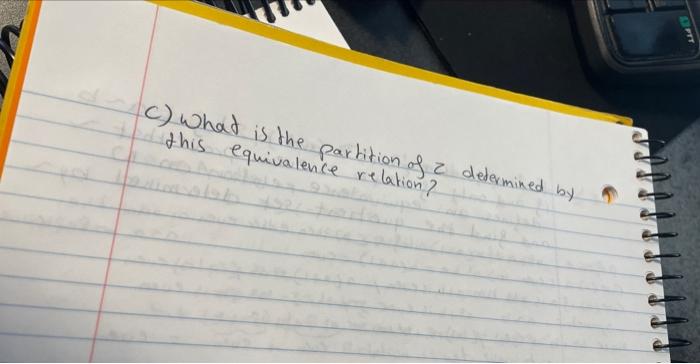 c) What is the partition of z determined by
this equivalence relation?